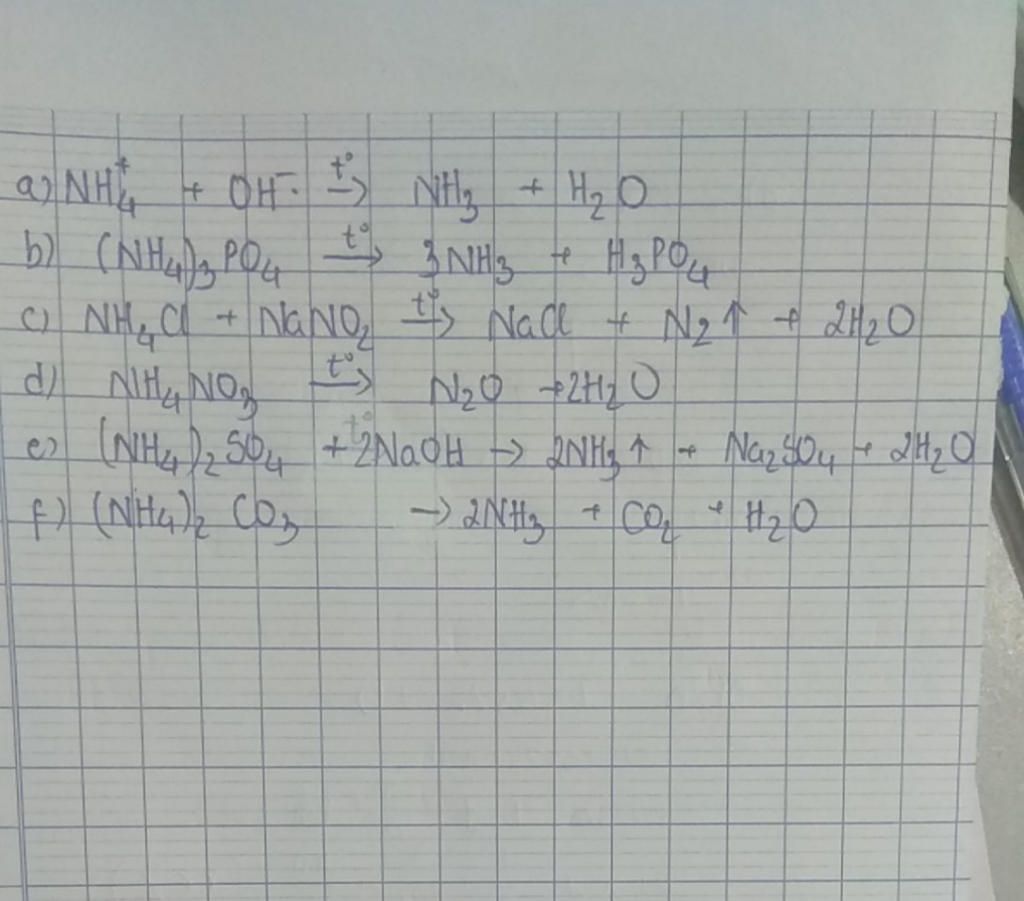 a) NH₄⁺ + OH⁻ t°→ NH₃ + H₂O
b) (NH₄)₃PO₄ t°→ 3NH₃ + H₃PO₄
c) NH₄Cl + NaNO₂ t°→ NaCl + N₂↑ + 2H₂O
d) NH₄NO₃ t°→ N₂O + 2H₂O
e) (NH₄)₂SO₄ + 2NaOH t°→ 2NH₃↑ + Na₂SO₄ + 2H₂O
f) (NH₄)₂CO₃ → 2NH₃ + CO₂ + H₂O